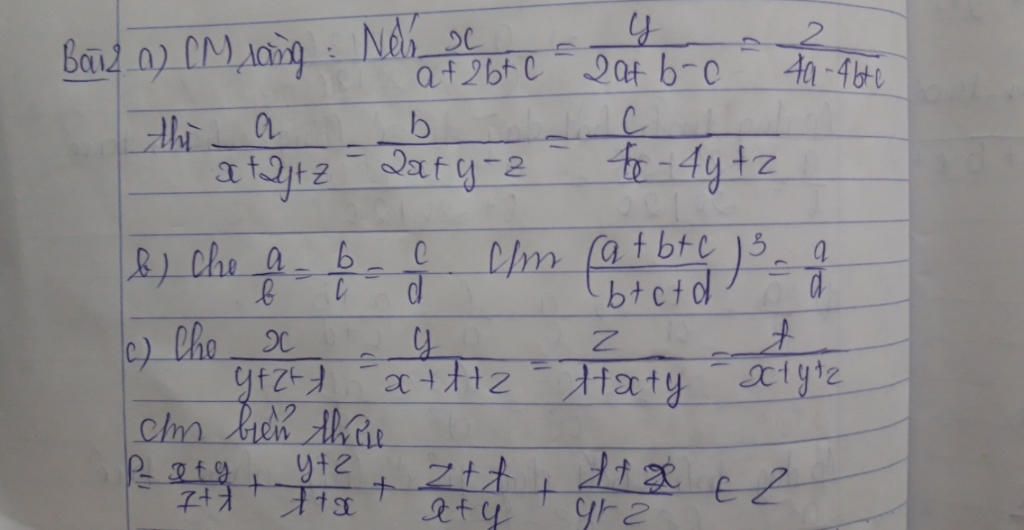 Bài 2 a) CM rằng : Nếu x/(a+2b+c) = y/(2a+b-c) = z/(4a-4b+c)
thì a/(x+2y+z) = b/(2x+y-z) = c/(4x-4y+z)
b) Cho a/b = b/c = c/d . C/m ((a+b+c)/(b+c+d))^3 = a/d
c) Cho x/(y+z+t) = y/(x+t+z) = z/(t+x+y) = t/(x+y+z)
c/m biển thức
P= (x+y)/(z+t) + (y+z)/(t+x) + (z+t)/(x+y) + (t+x)/(y+z) ∈ Z